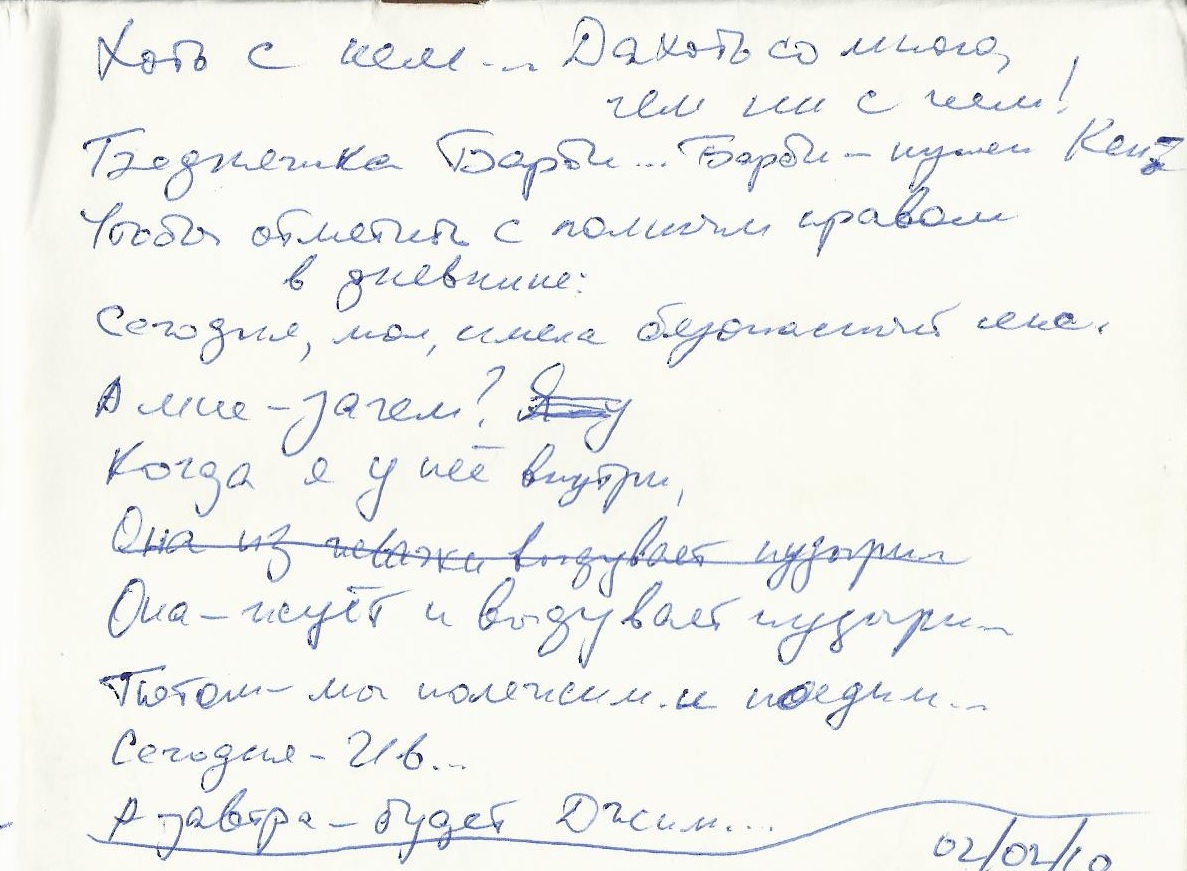 Хоть с кем... Да хоть со мною,
чем ни с кем!
Бедняжка Барби... Барби – нужен Кен
Чтобы отметить с полным правом
в дневнике:
Сегодня, мол, имела безопасный секс.
А мне – зачем?
Когда я у неё внутри,
Она из жвачки выдувает пузыри
Она – жуёт и выдувает пузыри...
Потом – мы полежим и поедим...
Сегодня – Ив...
А завтра – будет Джим...
02/02/10